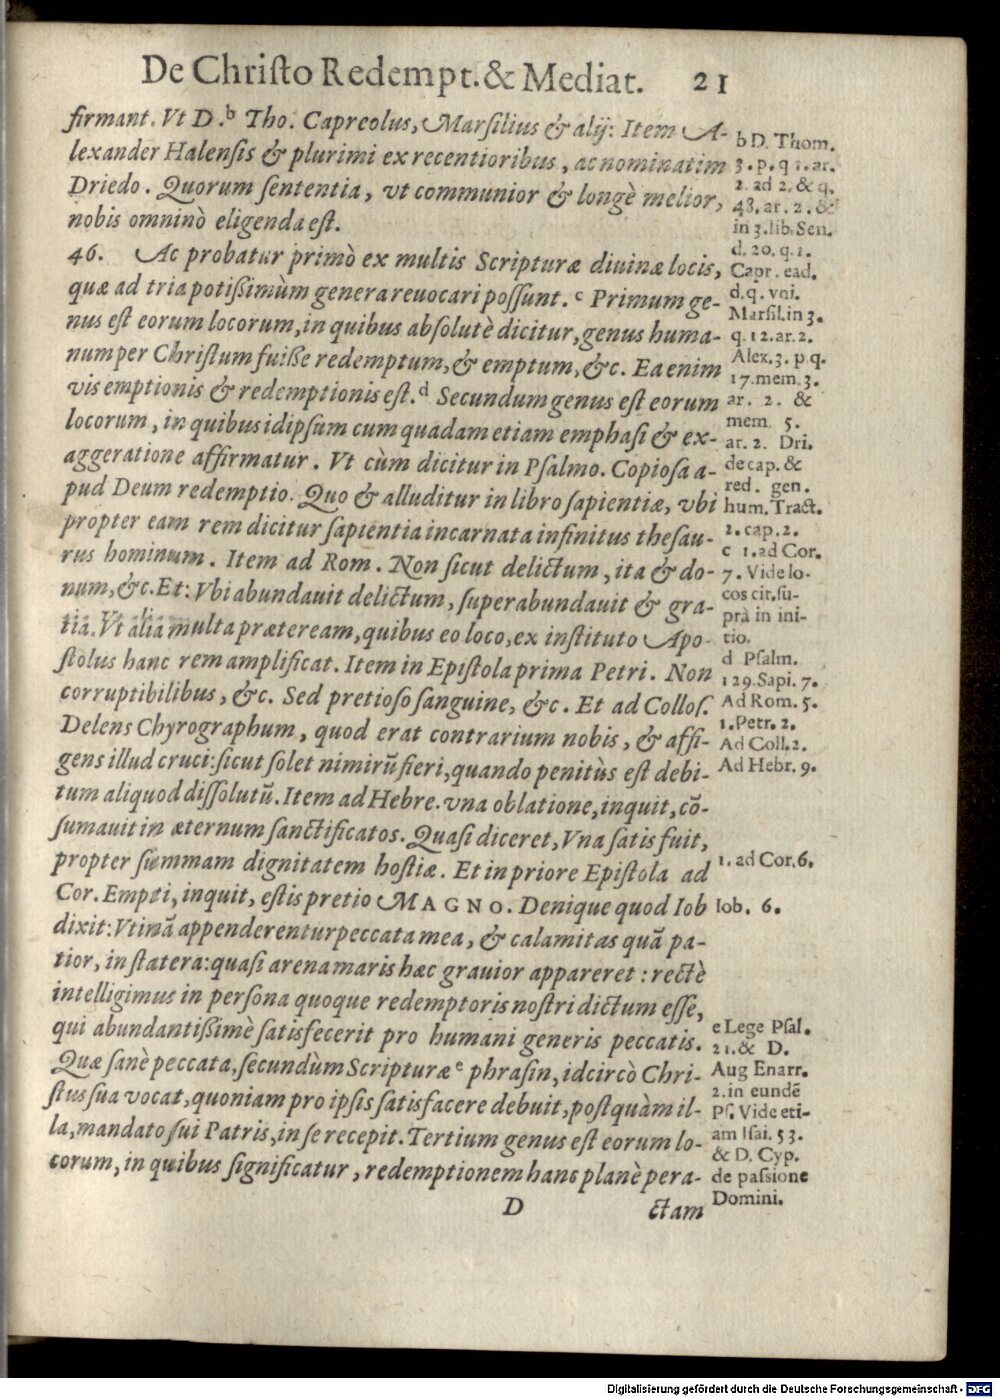 De Chriſto Redempt. & Mediat. 21
firmant. Vt D.ᵇ Tho. Capreolus, Marſilius & alij: Item A-
lexander Halenſis & plurimi ex recentioribus, ac nominatim
Driedo. Quorum ſententia, vt communior & longè melior,
nobis omninò eligenda eſt.
46. Ac probatur primò ex multis Scripturæ diuinæ locis,
quæ ad tria potißimùm genera reuocari poſſunt. ᶜ Primum ge-
nus eſt eorum locorum, in quibus abſolutè dicitur, genus huma-
num per Chriſtum fuiße redemptum, & emptum, &c. Ea enim
vis emptionis & redemptionis eſt.ᵈ Secundum genus eſt eorum
locorum, in quibus id ipſum cum quadam etiam emphaſi & ex-
aggeratione affirmatur. Vt cùm dicitur in Pſalmo. Copioſa a-
pud Deum redemptio. Quo & alluditur in libro ſapientiæ, vbi
propter eam rem dicitur ſapientia incarnata infinitus theſau-
rus hominum. Item ad Rom. Non ſicut delictum, ita & do-
num, &c. Et: Vbi abundauit delictum, ſuperabundauit & gra-
tia. Vt alia multa præteream, quibus eo loco, ex inſtituto Apo-
ſtolus hanc rem amplificat. Item in Epiſtola prima Petri. Non
corruptibilibus, &c. Sed pretioſo ſanguine, &c. Et ad Colloſ.
Delens Chyrographum, quod erat contrarium nobis, & affi-
gens illud cruci: ſicut ſolet nimirũ fieri, quando penitùs eſt debi-
tum aliquod diſſolutũ. Item ad Hebre. vna oblatione, inquit, cõ-
ſumauit in æternum ſanctificatos. Quaſi diceret, Vna ſatis fuit,
propter ſummam dignitatem hoſtiæ. Et in priore Epiſtola ad
Cor. Empti, inquit, eſtis pretio MAGNO. Denique quod Iob
dixit: Vtinã appenderentur peccata mea, & calamitas quã pa-
tior, in ſtatera: quaſi arena maris hæc grauior appareret: rectè
intelligimus in perſona quoque redemptoris noſtri dictum eſſe,
qui abundantißimè ſatisfecerit pro humani generis peccatis.
Quæ ſanè peccata, ſecundùm Scripturæᵉ phraſin, idcircò Chri-
ſtus ſua vocat, quoniam pro ipſis ſatisfacere debuit, poſtquàm il-
la, mandato ſui Patris, in ſe recepit. Tertium genus eſt eorum lo-
corum, in quibus ſignificatur, redemptionem hanc planè pera-
D ctam
b D. Thom.
3. p. q 1. ar.
2. ad 2. & q.
48. ar. 2. &
in 3. lib. Sen.
d. 20. q. 1.
Capr. ead.
d. q. vni.
Marſil. in 3.
q. 12. ar. 2.
Alex. 3. p. q.
17. mem. 3.
ar. 2. &
mem. 5.
ar. 2. Dri.
de cap. &
red. gen.
hum. Tract.
2. cap. 2.
c 1. ad Cor.
7. Vide lo-
cos cit. ſu-
prà in ini-
tio.
d Pſalm.
129. Sapi. 7.
Ad Rom. 5.
1. Petr. 2.
Ad Coll. 2.
Ad Hebr. 9.
1. ad Cor. 6.
Iob. 6.
e Lege Pſal.
21. & D.
Aug Enarr.
2. in eundẽ
Pſ. Vide eti-
am Iſai. 53.
& D. Cyp.
de paſſione
Domini.
Digitalisierung gefördert durch die Deutsche Forschungsgemeinschaft - DFG